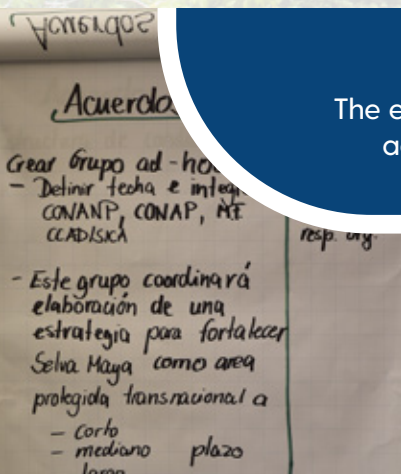 Acuerdos
Acuerdo
The e
a
Crear Grupo ad-ho
- Definir fecha e integ
CONANP, CONAP,
CCAD/SICA
resp. org.
- Este grupo coordinará
elaboración de una
estrategia para fortalecer
Selva Maya como area
protegida transnacional a
- corto
- mediano plazo
- largo